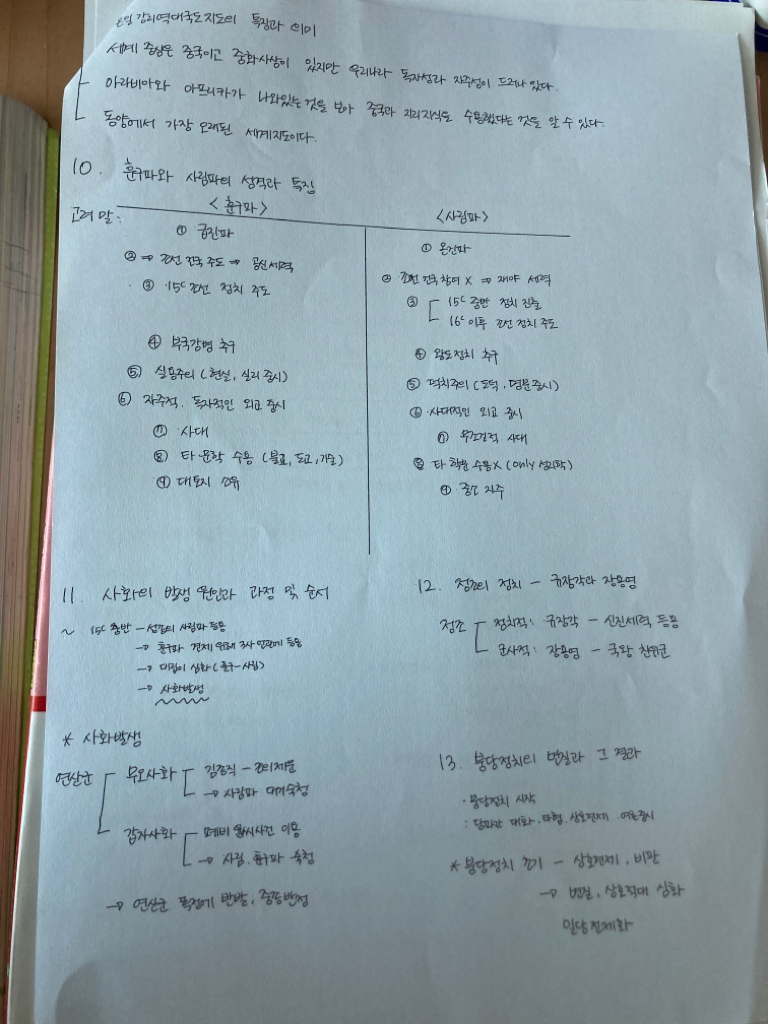 혼일강리역대국도지도의 특징과 의미
세계 중심은 중국이고 중화사상이 있지만 우리나라 독자성과 자주성이 드러나 있다.
아라비아와 아프리카가 나와있는 것을 보아 중국과 지리지식도 수용했다는 것을 알 수 있다.
동양에서 가장 오래된 세계지도이다.
10. 훈구파와 사림파의 성격과 특징
고려 말:
<훈구파>
① 급진파
② ⇒ 조선 건국 주도 ⇒ 공신세력
③ 15C 조선 정치 주도
④ 부국강병 추구
⑤ 실용주의 (현실, 실리 중시)
⑥ 자주적, 독자적인 외교 중시
⑦ 사대
⑧ 타 문학 수용 (불교, 도교, 기술)
⑨ 대토지 소유
<사림파>
① 온건파
② 조선 건국 참여 X ⇒ 재야 세력
③ 15C 중반 정치 진출
16C 이후 조선 정치 주도
④ 왕도정치 추구
⑤ 덕치주의 (도덕, 명분중시)
⑥ 사대적인 외교 중시
⑦ 무조건적 사대
⑧ 타 학문 수용X (only 성리학)
⑨ 중소 지주
11. 사화의 발생 원인과 과정 및 순서
~ 15C 중반 - 성종의 사림파 등용
→ 훈구파 견제 위해 3사 언관에 등용
→ 대립이 심화 (훈구-사림)
→ 사화발생
* 사화발생
연산군
무오사화
김종직 - 조의제문
→ 사림파 대거숙청
갑자사화
폐비 윤씨사건 이용
→ 사림, 훈구파 숙청
→ 연산군 폭정에 반발, 중종반정
12. 정조의 정치 - 규장각과 장용영
정조
정치적: 규장각 - 신진세력 등용
군사적: 장용영 - 국왕 친위군
13. 붕당정치의 변질과 그 결과
· 붕당정치 시작
: 당파간 대화, 타협, 상호견제, 여론중시
* 붕당정치 초기 - 상호견제, 비판
→ 변질, 상호적대 심화
일당전제화